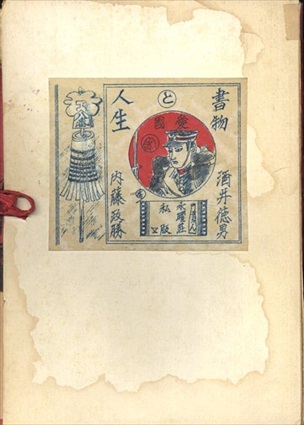 書物
と
人生
酒井徳男
内藤政勝
愛国
水曜荘
私版